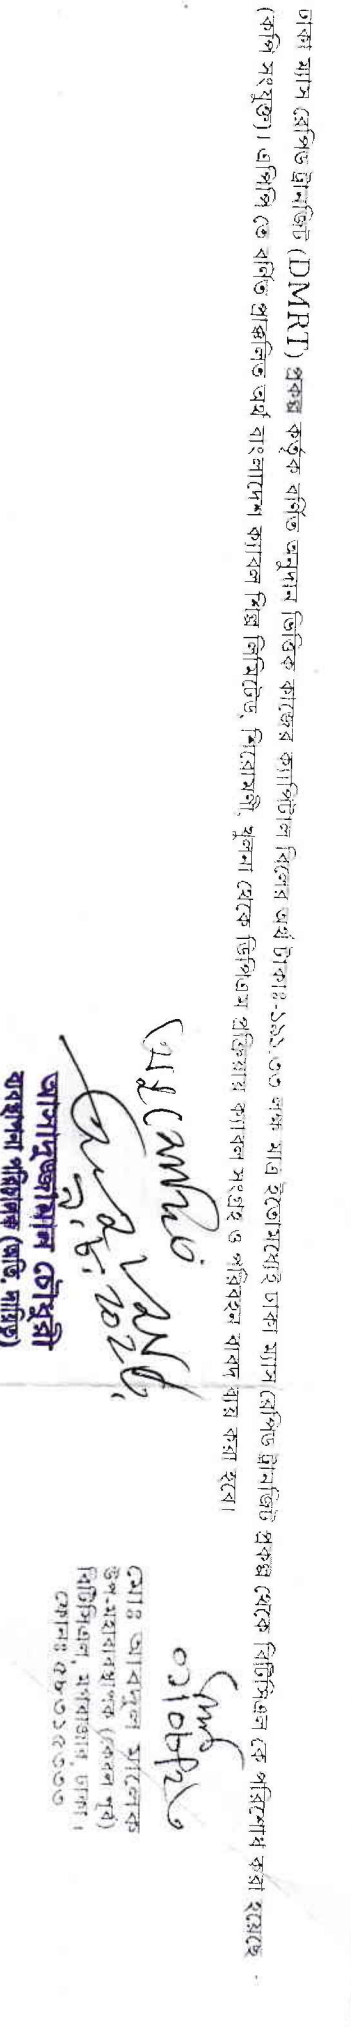 ঢাকা ম্যাস রেপিড ট্রানজিট (DMRT) প্রকল্প কর্তৃক বর্ণিত অনুদান ভিত্তিক কাজের ক্যাপিটাল বিলের অর্থ টাকাঃ-১৯১.৩৩ লক্ষ মাত্র ইতোমধ্যেই ঢাকা ম্যাস রেপিড ট্রানজিট প্রকল্প থেকে বিটিসিএল কে পরিশোধ করা হয়েছে -
(কপি সংযুক্ত)। এপিপি তে বর্ণিত প্রাক্কলিত অর্থ বাংলাদেশ ক্যাবল শিল্প লিমিটেড, শিরোমণী, খুলনা থেকে ডিপিএম প্রক্রিয়ায় ক্যাবল সংগ্রহ ও পরিবহন বাবদ ব্যয় করা হবে।
অনুমোদিত
আসাদুজ্জামান চৌধুরী
ব্যবস্থাপনা পরিচালক (অতি. দায়িত্ব)
মোঃ আবদুল মালেক
উপ-মহাব্যবস্থাপক (কেবল পূর্ব)
বিটিসিএল, মগবাজার, ঢাকা।
ফোনঃ ৫৮৩১৫৩৩৩